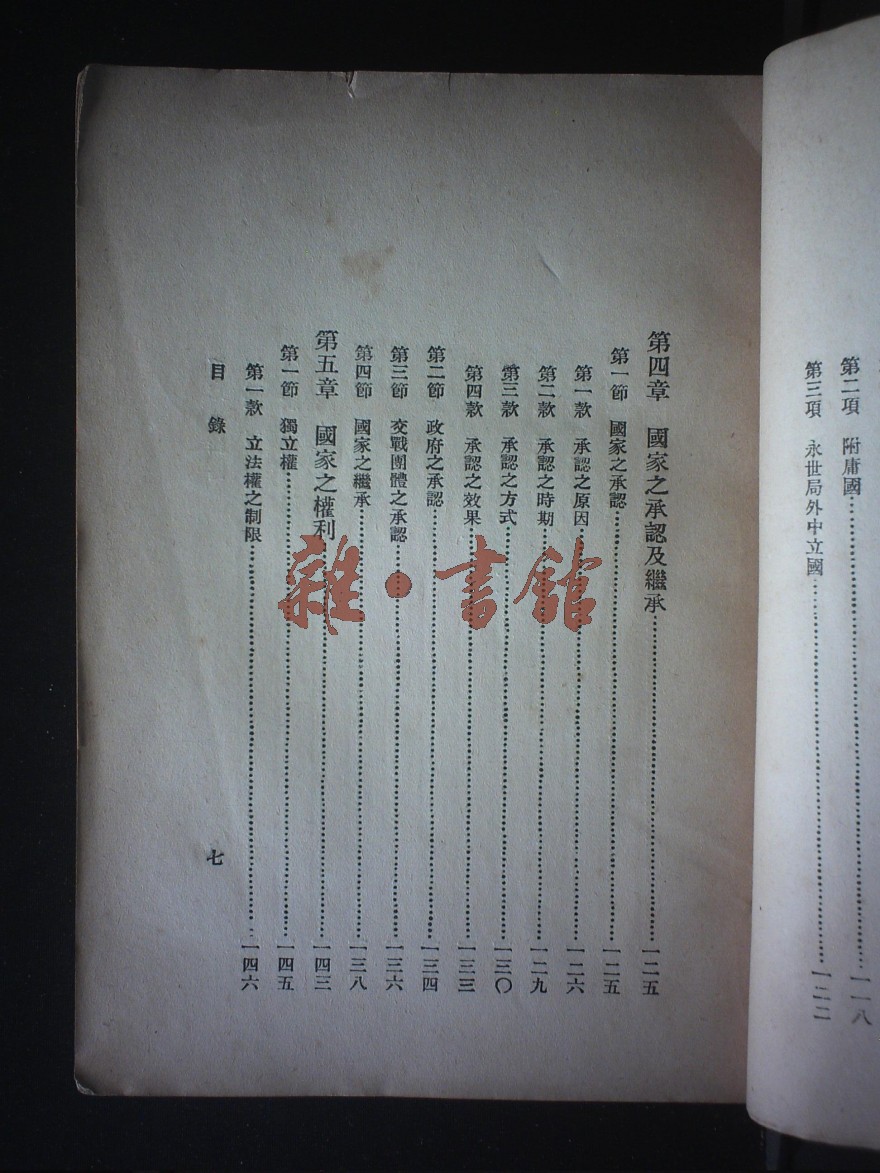 第二項 附庸國……一一八
第三項 永世局外中立國……一二二
第四章 國家之承認及繼承……一二五
第一節 國家之承認……一二五
第一款 承認之原因……一二六
第二款 承認之時期……一二九
第三款 承認之方式……一三〇
第四款 承認之效果……一三三
第二節 政府之承認……一三四
第三節 交戰團體之承認……一三六
第四節 國家之繼承……一三八
第五章 國家之權利……一四三
第一節 獨立權……一四五
第一款 立法權之制限……一四六
目錄 七
雜·書館